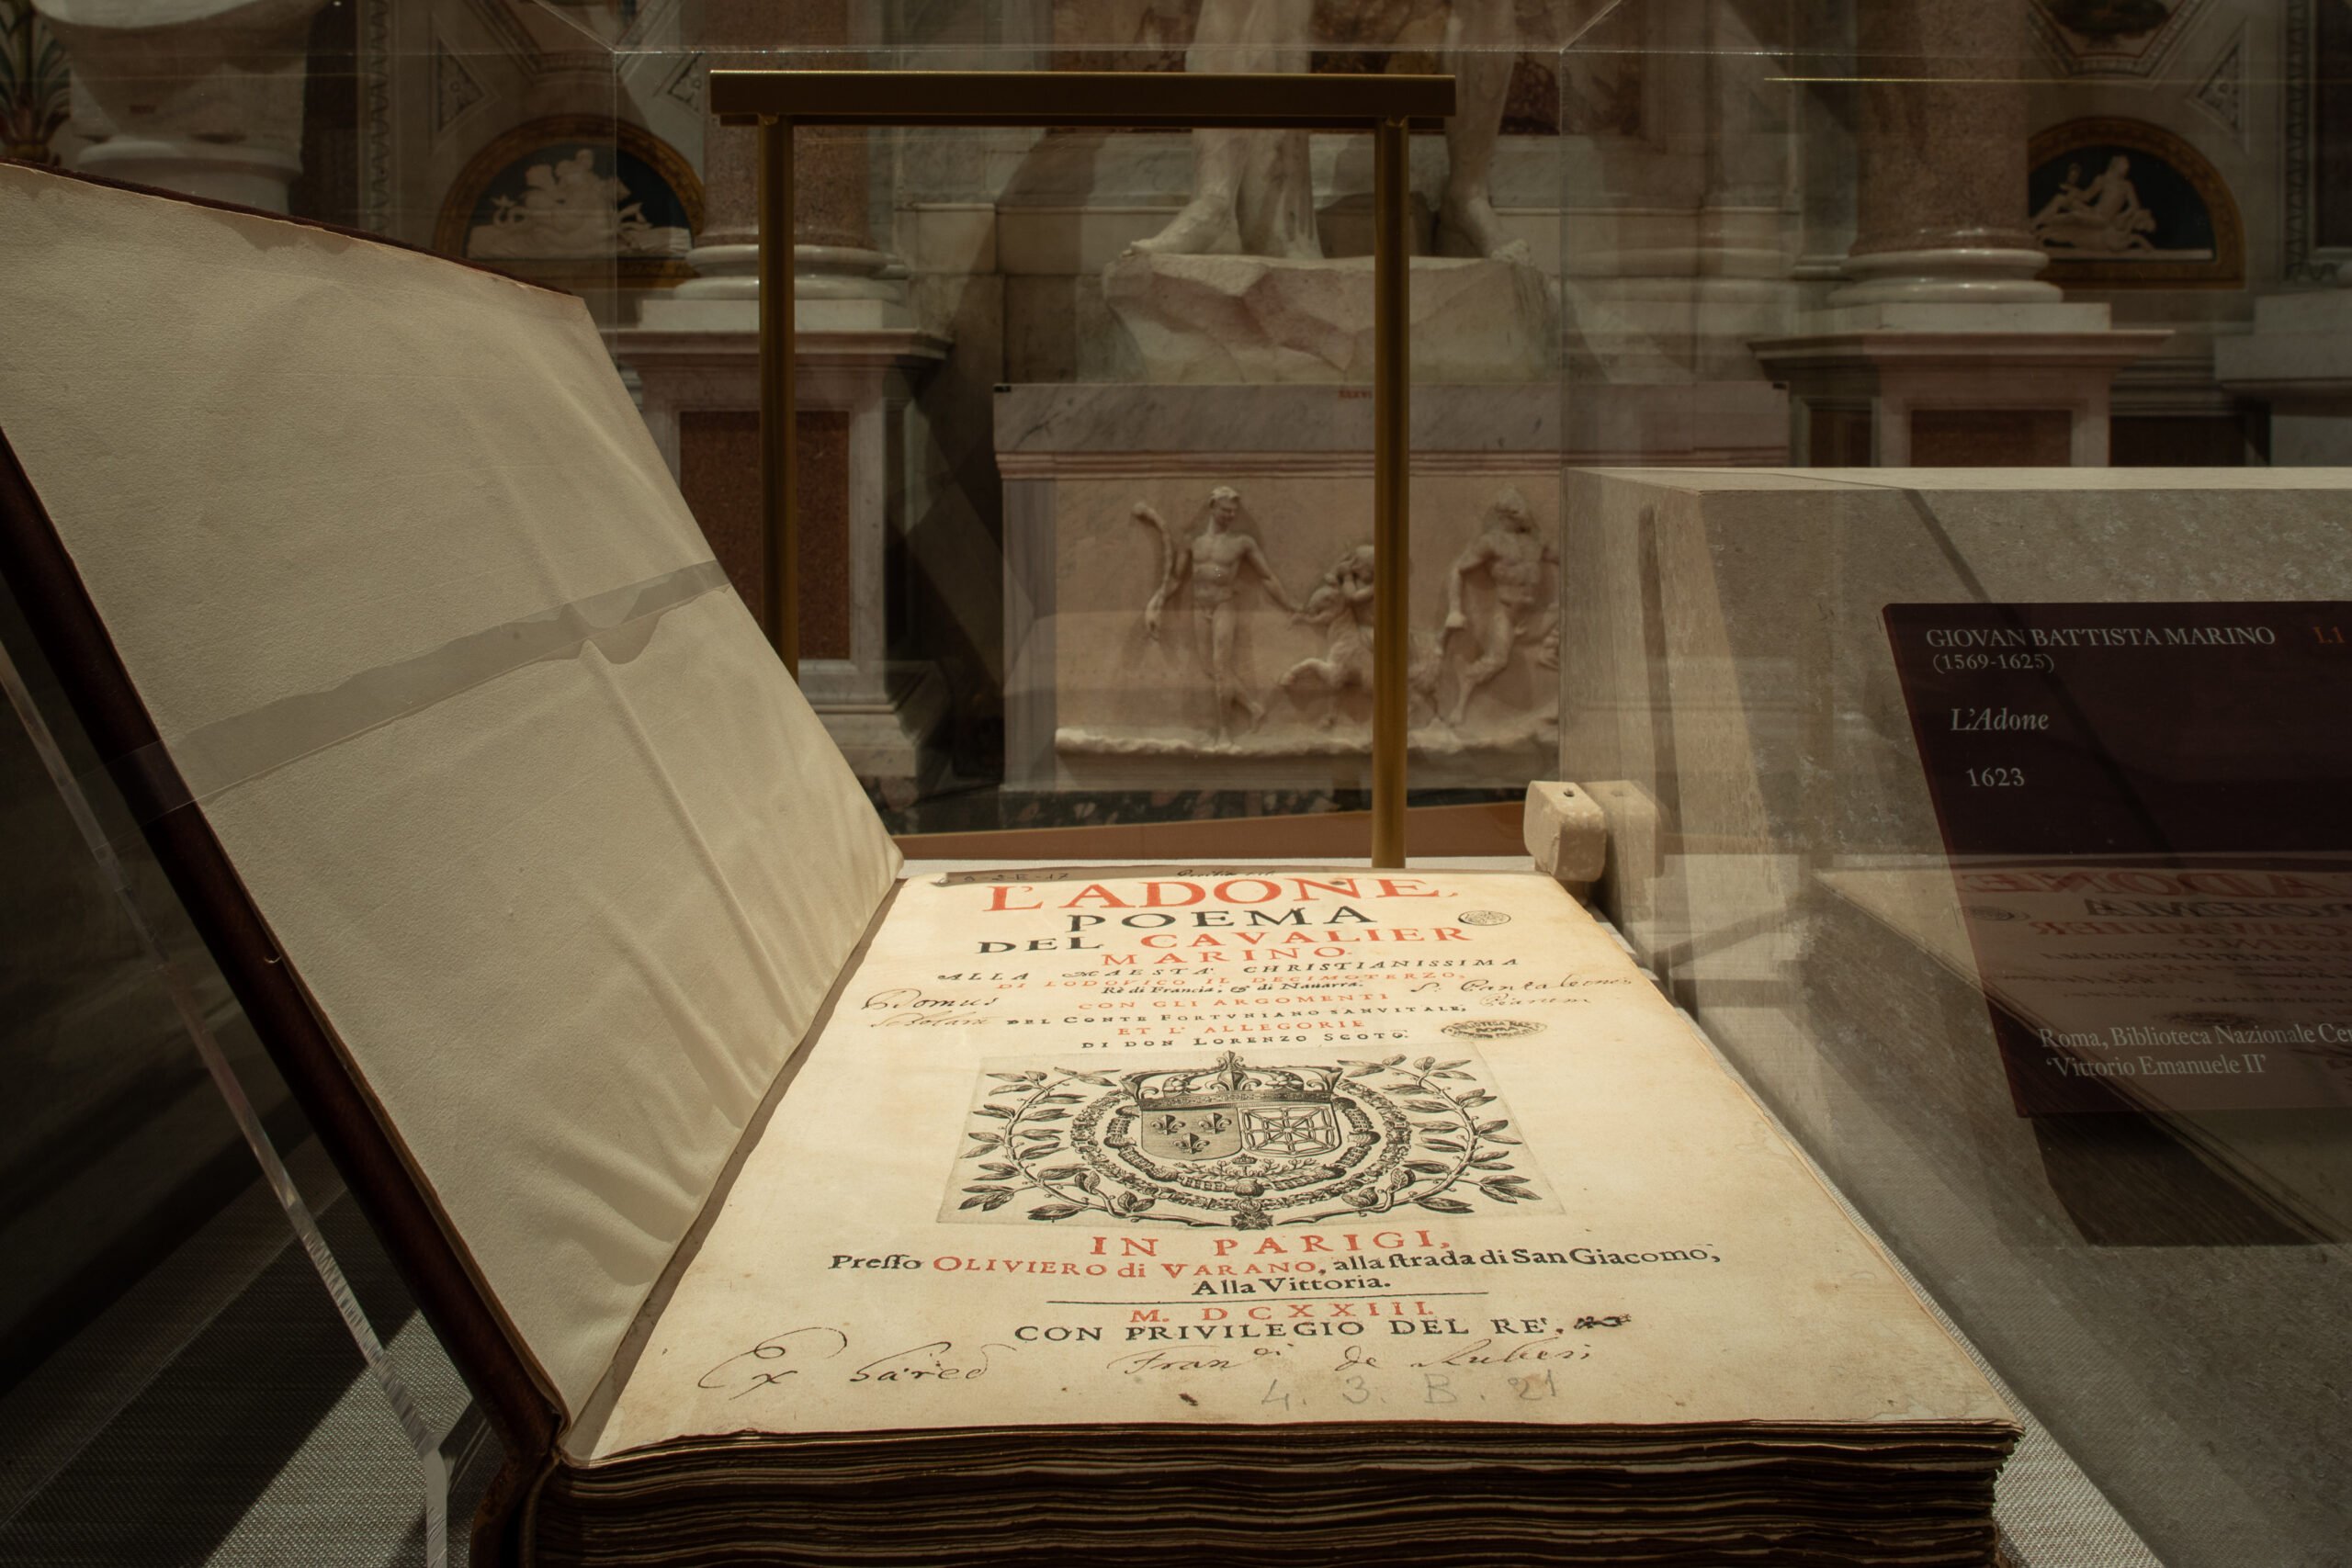 L'ADONE,
POEMA
DEL CAVALIER
MARINO.
ALLA MAESTA' CHRISTIANISSIMA
DI LODOVICO IL DECIMOTERZO,
Rè di Francia, & di Nauarra.
CON GLI ARGOMENTI
DEL CONTE FORTVNIANO SANVITALE,
ET L'ALLEGORIE
DI DON LORENZO SCOTO.
Domus
S. Pantaleonis
IN PARIGI,
Presso OLIVIERO di VARANO, alla strada di San Giacomo,
Alla Vittoria.
M. DCXXIII.
CON PRIVILEGIO DEL RE'.
Ex
Fran
de Ruberi
4. 3. B. 21
GIOVAN BATTISTA MARINO I.1
(1569-1625)
L'Adone
1623
Roma, Biblioteca Nazionale Ce
'Vittorio Emanuele II'